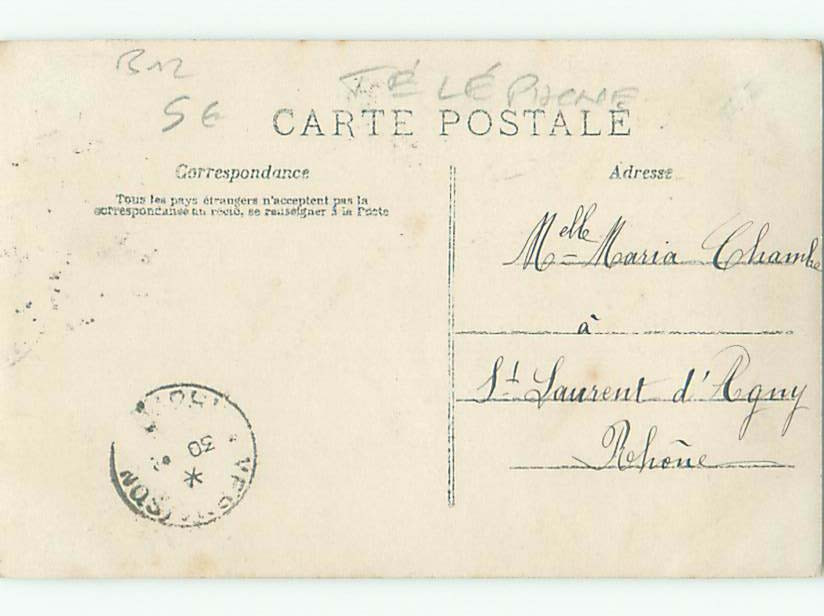 TÉLÉPHONE
5€
CARTE POSTALE
Correspondance
Tous les pays étrangers n'acceptent pas la
correspondance au recto, se renseigner à la Poste
Adresse
Melle Maria Chambe
à
St Laurent d'Agny
Rhône
30